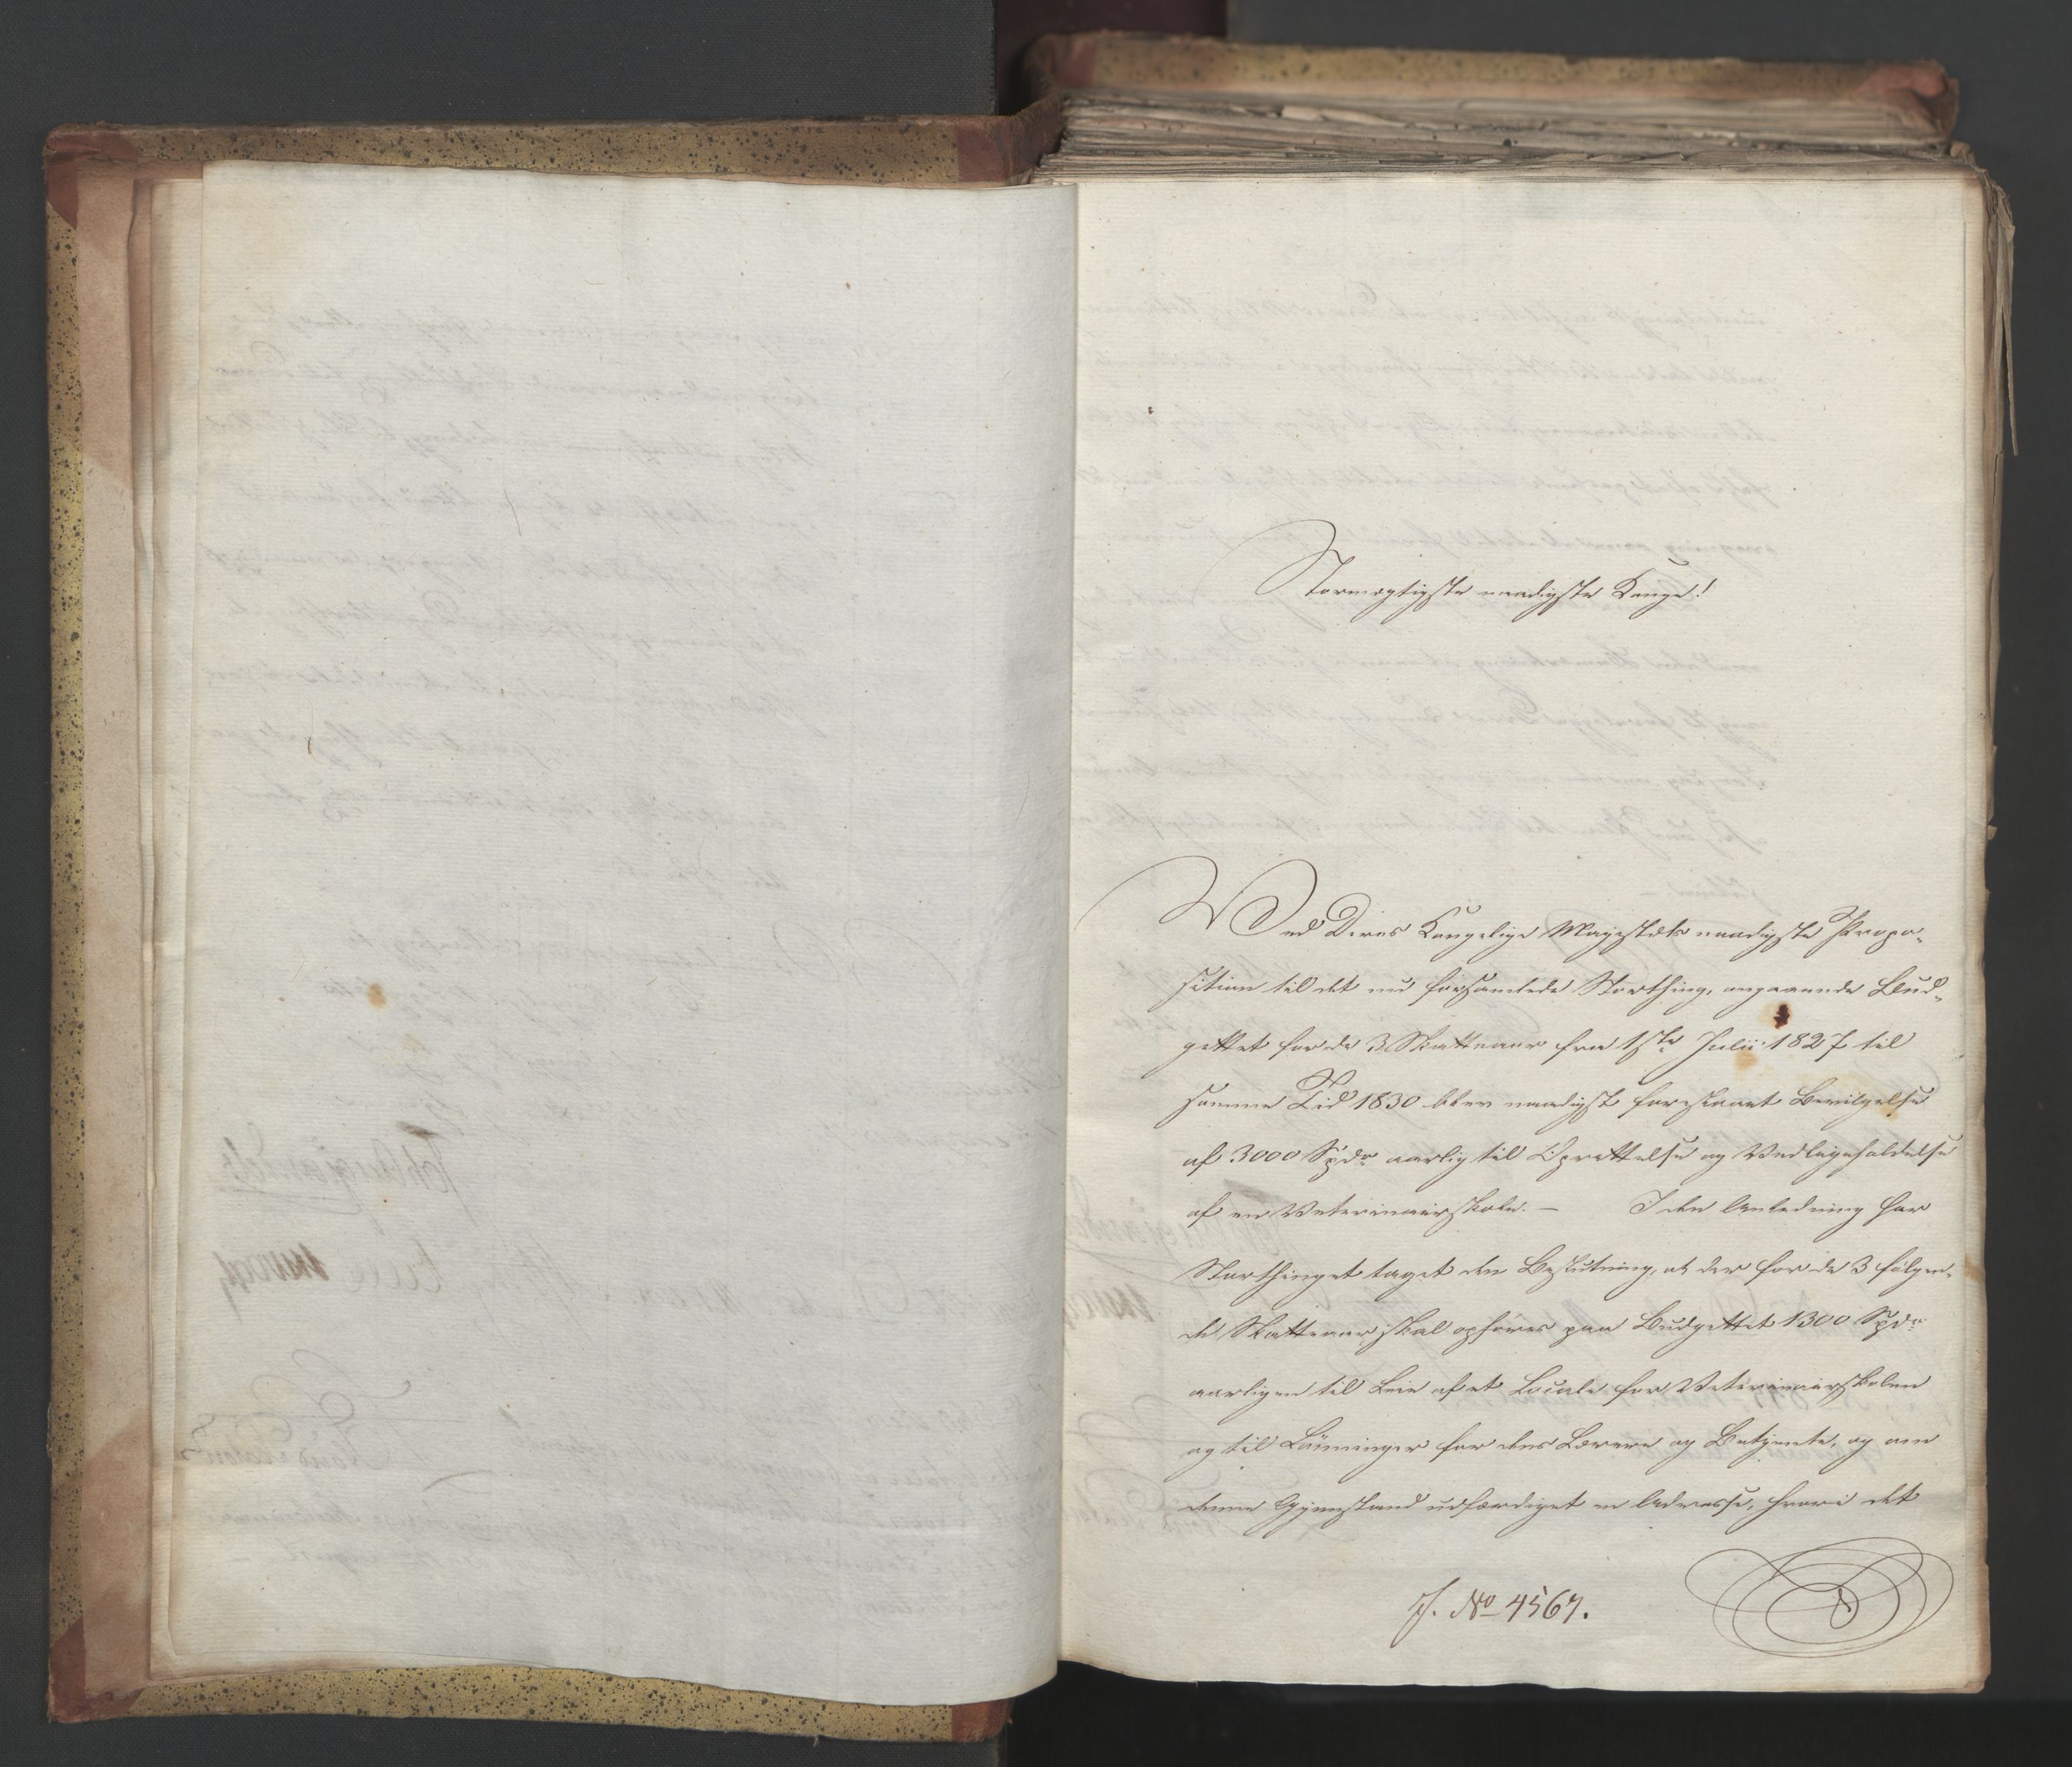 Stormægtigste naadigste Konge!
Ved Deres Kongelige Majestæts naadigste Propo-
sition til det nu forsamlede Storthing, angaaende Bud-
gettet for de 3 Skatteaar fra 1ste Julii 1827 til
samme Tid 1830 blev naadigst foreslaaet Bevilgelse
af 3000 Spdr aarlig til Oprettelse og Vedligeholdelse
af en Veterinairskole. — I den Anledning har
Storthinget taget den Beslutning, at der for de 3 følgen-
de Skatteaar skal opføres paa Budgettet 1300 Spdr
aarligen til Leie af et Locale for Veterinairskolen
og til Lønninger for dens Lærere og Betjente, og om
denne Gjenstand udfærdiget en Adresse, hvori det
J. No 4567.